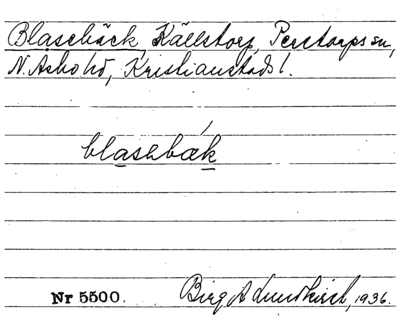 Blasebäck, Källstorp, Perstorps sn,
N. Åsbo hd, Kristianstads l.
blasabæk
Nr 5500. Birg A Lundkvist, 1936.